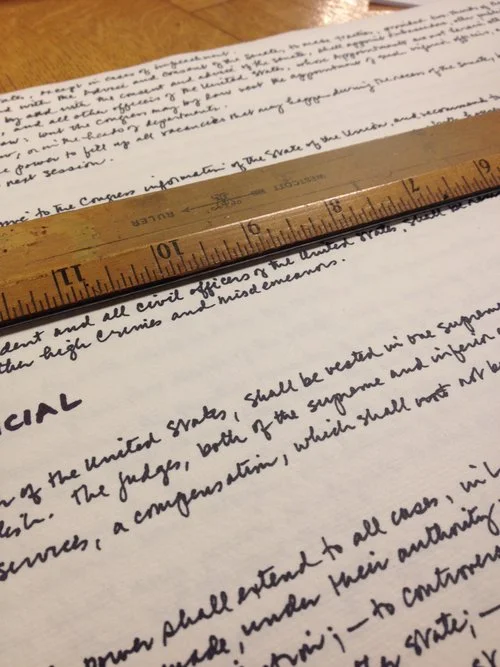 , except in cases of impeachment.
with the Advice and Consent of the Senate, to make Treaties, provided two thirds of the
by and with the consent and advice of the senate, shall appoint Ambassadors, other public
and all other officers of the United States, whose Appointments are not herein
; but the Congress may by law vest the appointments of such inferior officers,
, or in the heads of departments.
power to fill up all vacancies that may happen during the recess of the Senate,
next session.
to the Congress information of the State of the Union, and recommend
WESTCOTT RULER
11 10 9 8 7 6
dent and all civil officers of the United States, shall be
ther high crimes and misdemeanors.
ICIAL
of the United States, shall be vested in one supreme
. The judges, both of the supreme and inferior
services, a compensation, which shall not be
power shall extend to all cases, in
made, under their authority
tion; — to controvers
state; —